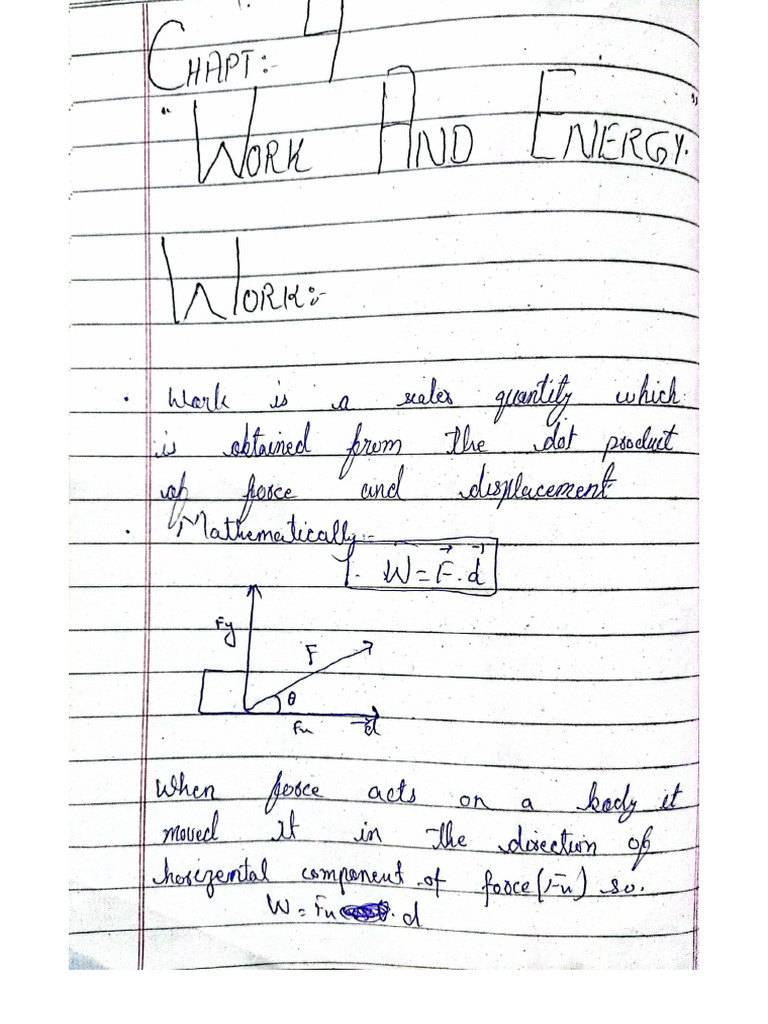 CHAPT:- 4
"WORK AND ENERGY."
WORK:-
. Work is a scaler quantity which
is obtained from the dot product
of force and displacement
. Mathematically:-
W = F⃗ . d⃗
Fy
F
θ
Fx
d⃗
When force acts on a body it
moved it in the direction of
horizental component of force (Fx) so.
W = Fx . d